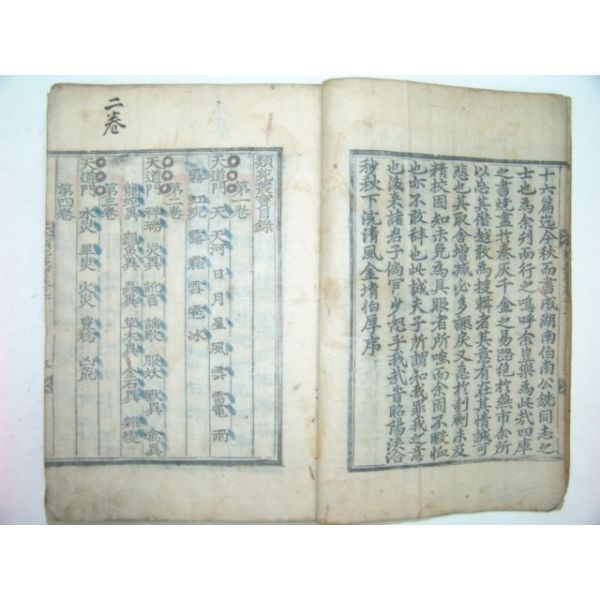 十六篇迄今秋而書成湖南伯南公銑同志之
士也為余刋而行之嗚呼余豈樂為此哉四庫
之書燒盡於秦灰千金之易於燕市余所
以忘其僭越敢為掇輯者其意有在其情誠可
悲也其取舍增減必多謬戾又急於剞劂未及
精校固知未免為具眼者所嗤而余固不暇恤
也亦不敢辞也此誠夫子所謂知我罪我之意
也後來諸君子倘可少恕乎我哉昔昭陽洽
秒秋下浣清風金堉伯厚序
類苑叢寶目錄
第一卷
天道門 天 天河 日 月 星 風 雲 雷電 雨
霧 虹蜺 露 霜 雪 雹 冰
第二卷
天道門 祥瑞 災異 訛言 謠歌 服妖 獸異 禽異
龍蛇異 龜魚異 蟲異 草木異 金石異 雜變
第三卷
天道門 水災 旱災 火災 豊稔 凶荒
第四卷
二卷